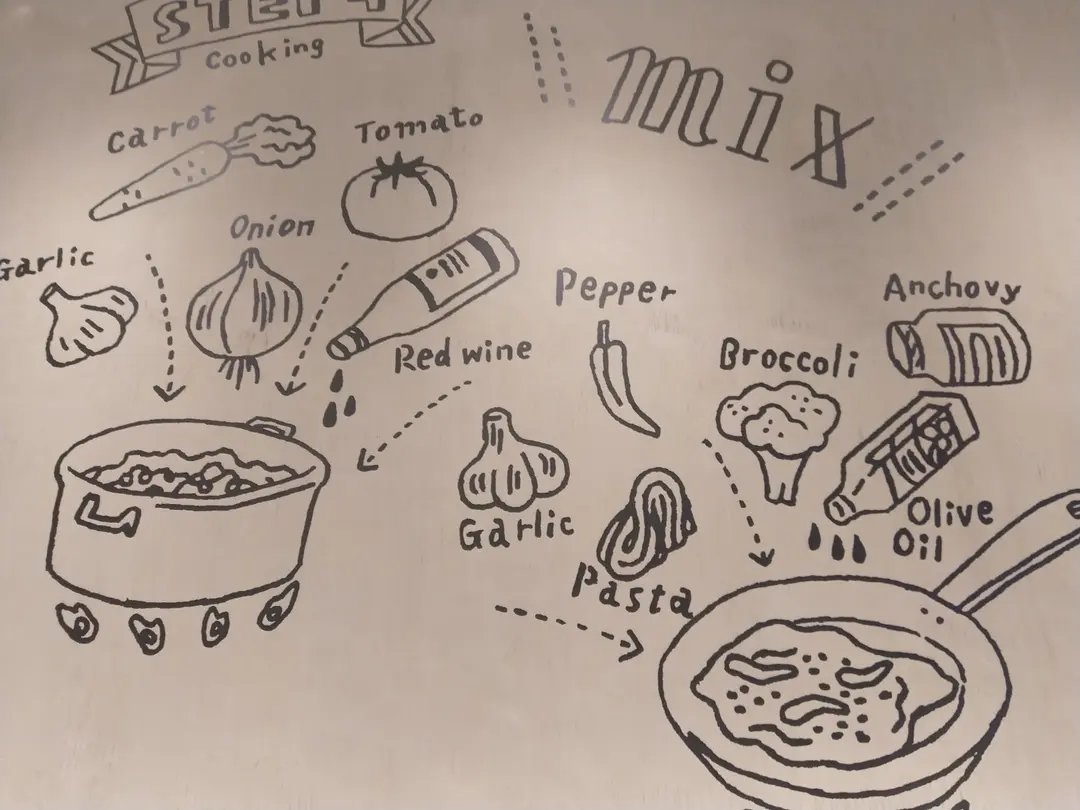 Cooking
mix
Carrot
Tomato
Onion
Garlic
Red wine
Pepper
Anchovy
Broccoli
Garlic
Olive
Oil
Pasta